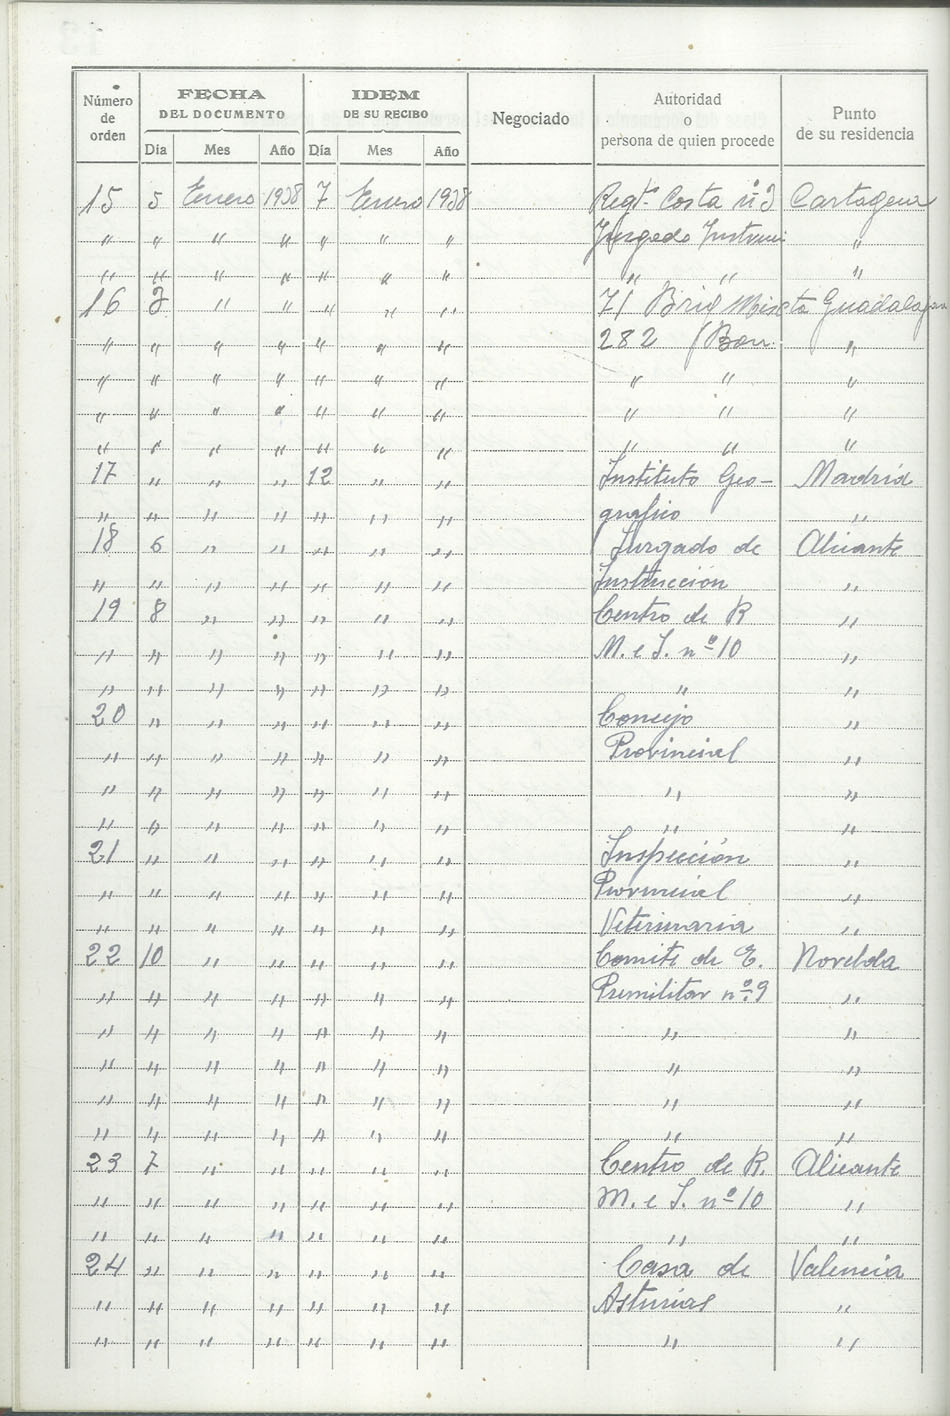 Número de orden FECHA DEL DOCUMENTO IDEM DE SU RECIBO Negociado Autoridad o persona de quien procede Punto de su residencia
Día Mes Año Día Mes Año
15 5 Enero 1938 7 Enero 1938 Regtº Costa nº 3 Cartagena
" " " " " " " Juzgado Instrucci "
" " " " " " " " " "
16 3 " " " " " 71 Brid Mixta Guadalajara
" " " " " " " 282 (Bon. "
" " " " " " " " " "
" " " " " " " " " "
" " " " " " " " " "
17 " " " 12 " " Instituto Geo- Madrid
" " " " " " " grafico "
18 6 " " " " " Juzgado de Alicante
" " " " " " " Instrucción "
19 8 " " " " " Centro de R "
" " " " " " " M. e I. nº 10 "
" " " " " " " " "
20 " " " " " " Consejo "
" " " " " " " Provincial "
" " " " " " " " "
" " " " " " " " "
21 " " " " " " Inspección "
" " " " " " " Provincial "
" " " " " " " Veterinaria "
22 10 " " " " " Comite de E. Novelda
" " " " " " " Premilitar nº 9 "
" " " " " " " " "
" " " " " " " " "
" " " " " " " " "
" " " " " " " " "
23 7 " " " " " Centro de R. Alicante
" " " " " " " M. e I. nº 10 "
" " " " " " " " "
24 " " " " " " Casa de Valencia
" " " " " " " Asturias "
" " " " " " " " "